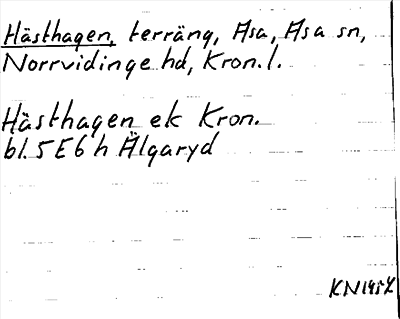 Hästhagen, terräng, Asa, Asa sn,
Norrvidinge hd, Kron. l.
Hästhagen ek Kron.
bl. 5E6h Älgaryd